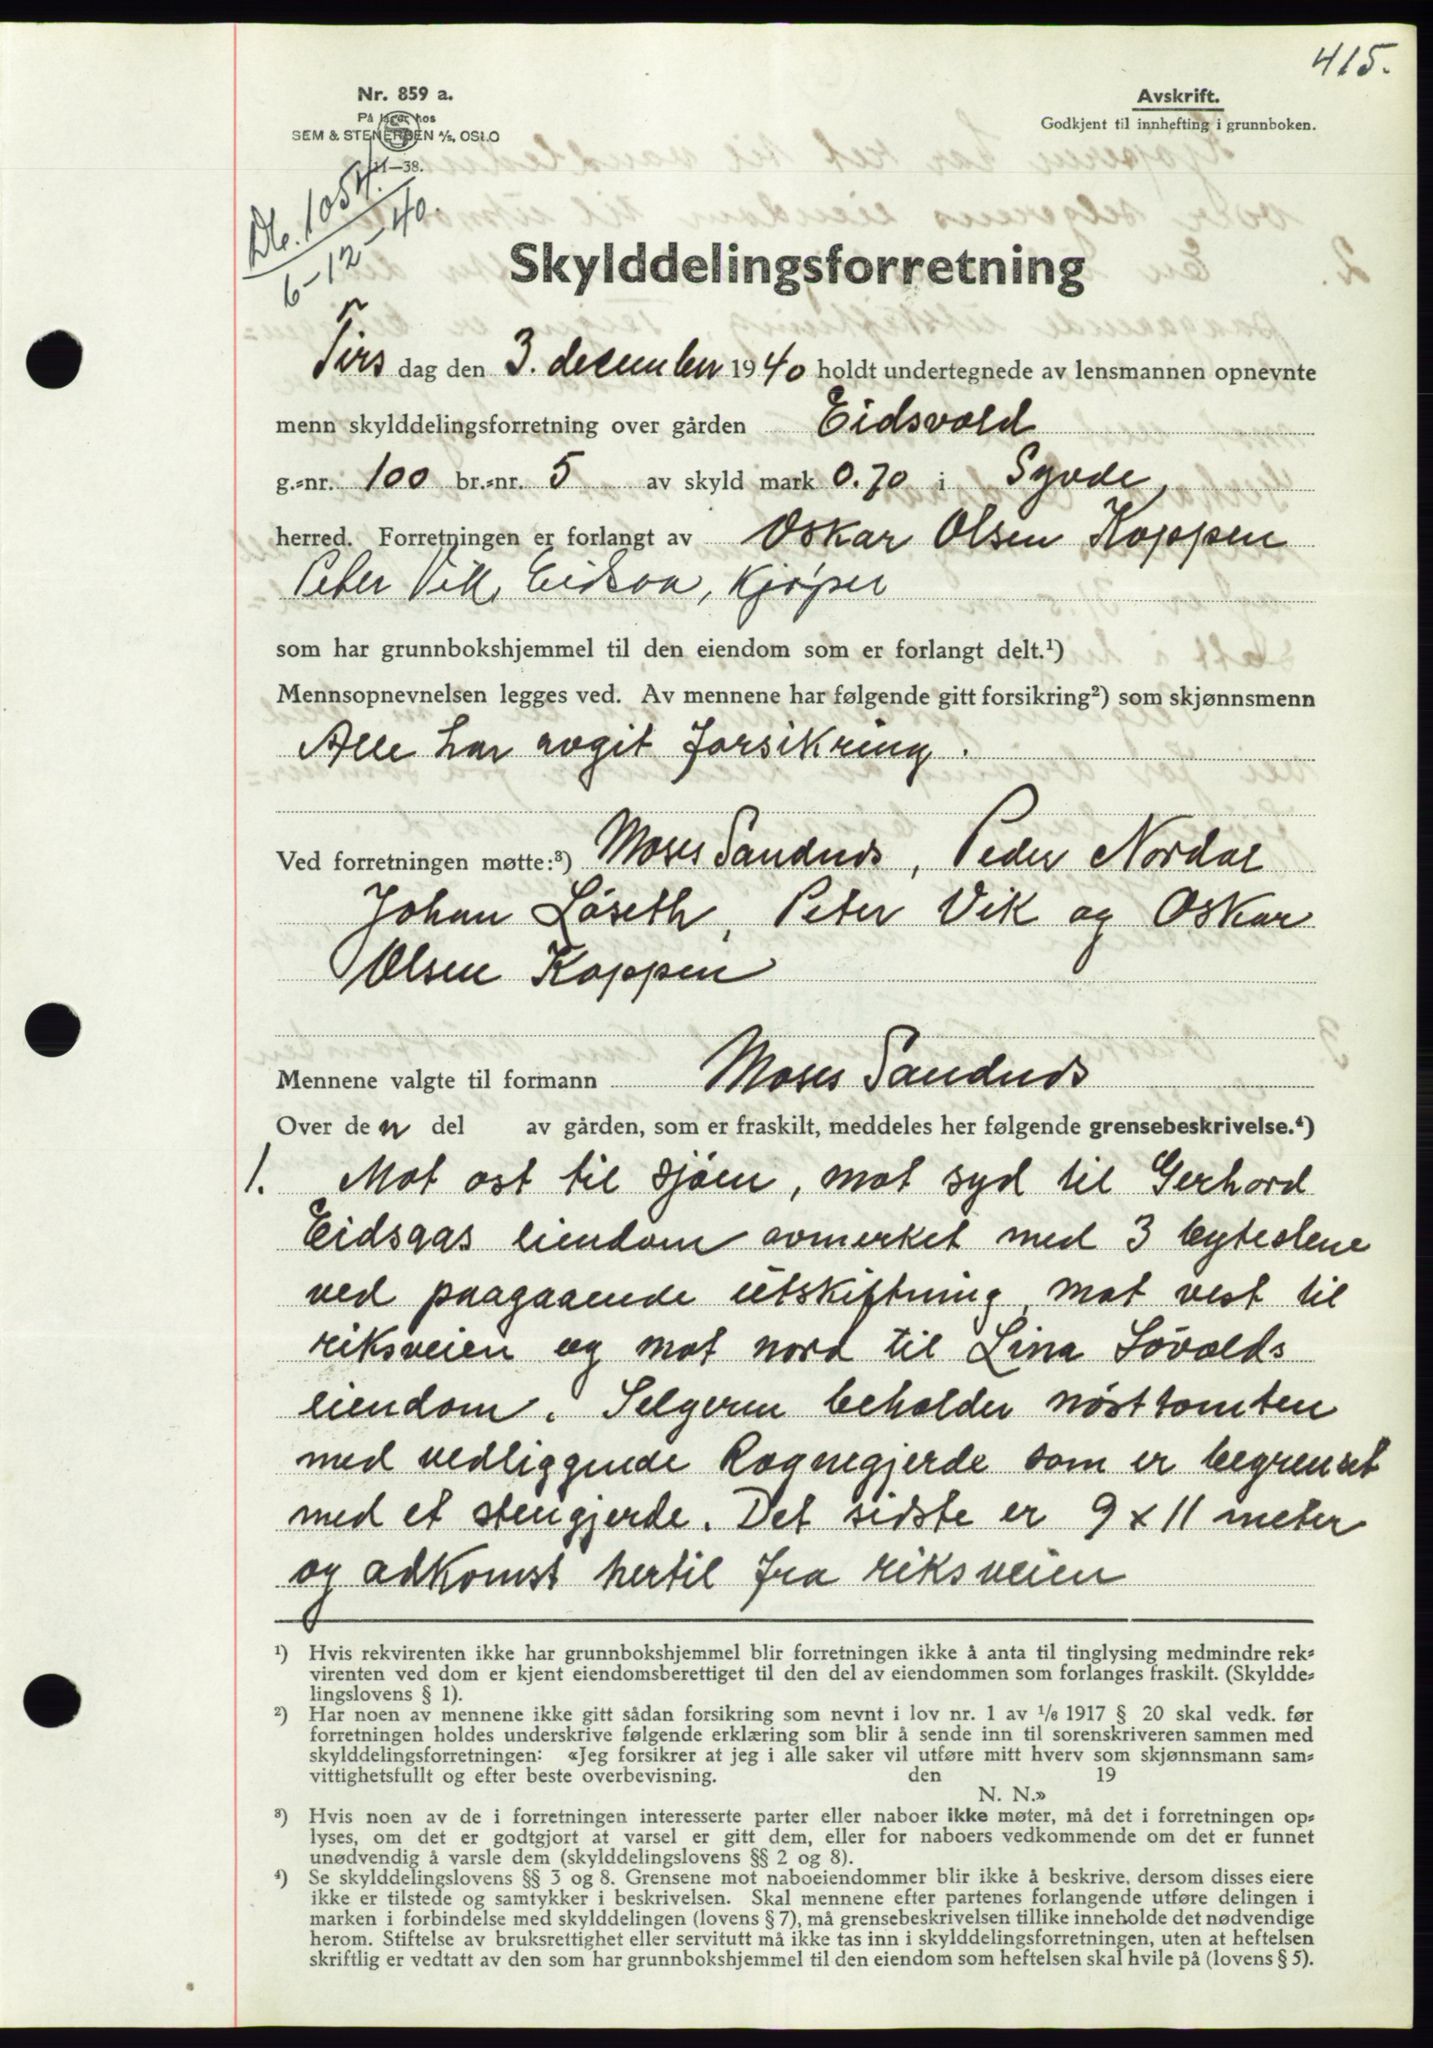 415.
Nr. 859 a.
På lager hos
SEM & STENERSEN A/S, OSLO
11—38.
Avskrift.
Godkjent til innhefting i grunnboken.
Db. 1054
6-12-40.
Skylddelingsforretning
Tirs dag den 3. december 1940 holdt undertegnede av lensmannen opnevnte
menn skylddelingsforretning over gården Eidsvold
g.-nr. 100 br.-nr. 5 av skyld mark 0.70 i Syvde,
herred. Forretningen er forlangt av Oskar Olsen Koppen
Peter Vik, Eidsaa, Kjøper
som har grunnbokshjemmel til den eiendom som er forlangt delt.¹)
Mennsopnevnelsen legges ved. Av mennene har følgende gitt forsikring²) som skjønnsmenn
Alle har avgit forsikring.
Ved forretningen møtte:³) Moses Sandnes, Peder Nordal
Johan Löseth, Peter Vik og Oskar
Olsen Koppen
Mennene valgte til formann Moses Sandnes
Over den del av gården, som er fraskilt, meddeles her følgende grensebeskrivelse.⁴)
1. Mot ost til sjöen, mot syd til Gerhard
Eidsaas eiendom avmerket med 3 bytestene
ved paagaaende utskiftning, mot vest til
riksveien og mot nord til Lina Lövolds
eiendom. Selgeren beholder nösttomten
med vedliggende Rognegjerde som er begrenset
med et stengjerde. Det sidste er 9 x 11 meter
og adkomst hertil fra riksveien
¹) Hvis rekvirenten ikke har grunnbokshjemmel blir forretningen ikke å anta til tinglysing medmindre rek-
virenten ved dom er kjent eiendomsberettiget til den del av eiendommen som forlanges fraskilt. (Skyldde-
lingslovens § 1).
²) Har noen av mennene ikke gitt sådan forsikring som nevnt i lov nr. 1 av 1/6 1917 § 20 skal vedk. før
forretningen holdes underskrive følgende erklæring som blir å sende inn til sorenskriveren sammen med
skylddelingsforretningen: «Jeg forsikrer at jeg i alle saker vil utføre mitt hverv som skjønnsmann sam-
vittighetsfullt og efter beste overbevisning. den 19
N. N.»
³) Hvis noen av de i forretningen interesserte parter eller naboer ikke møter, må det i forretningen op-
lyses, om det er godtgjort at varsel er gitt dem, eller for naboers vedkommende om det er funnet
unødvendig å varsle dem (skylddelingslovens §§ 2 og 8).
⁴) Se skylddelingslovens §§ 3 og 8. Grensene mot naboeiendommer blir ikke å beskrive, dersom disses eiere
ikke er tilstede og samtykker i beskrivelsen. Skal mennene efter partenes forlangende utføre delingen i
marken i forbindelse med skylddelingen (lovens § 7), må grensebeskrivelsen tillike inneholde det nødvendige
herom. Stiftelse av bruksrettighet eller servitutt må ikke tas inn i skylddelingsforretningen, uten at heftelsen
skriftlig er vedtatt av den som har grunnbokshjemmel til den eiendom som heftelsen skal hvile på (lovens § 5).